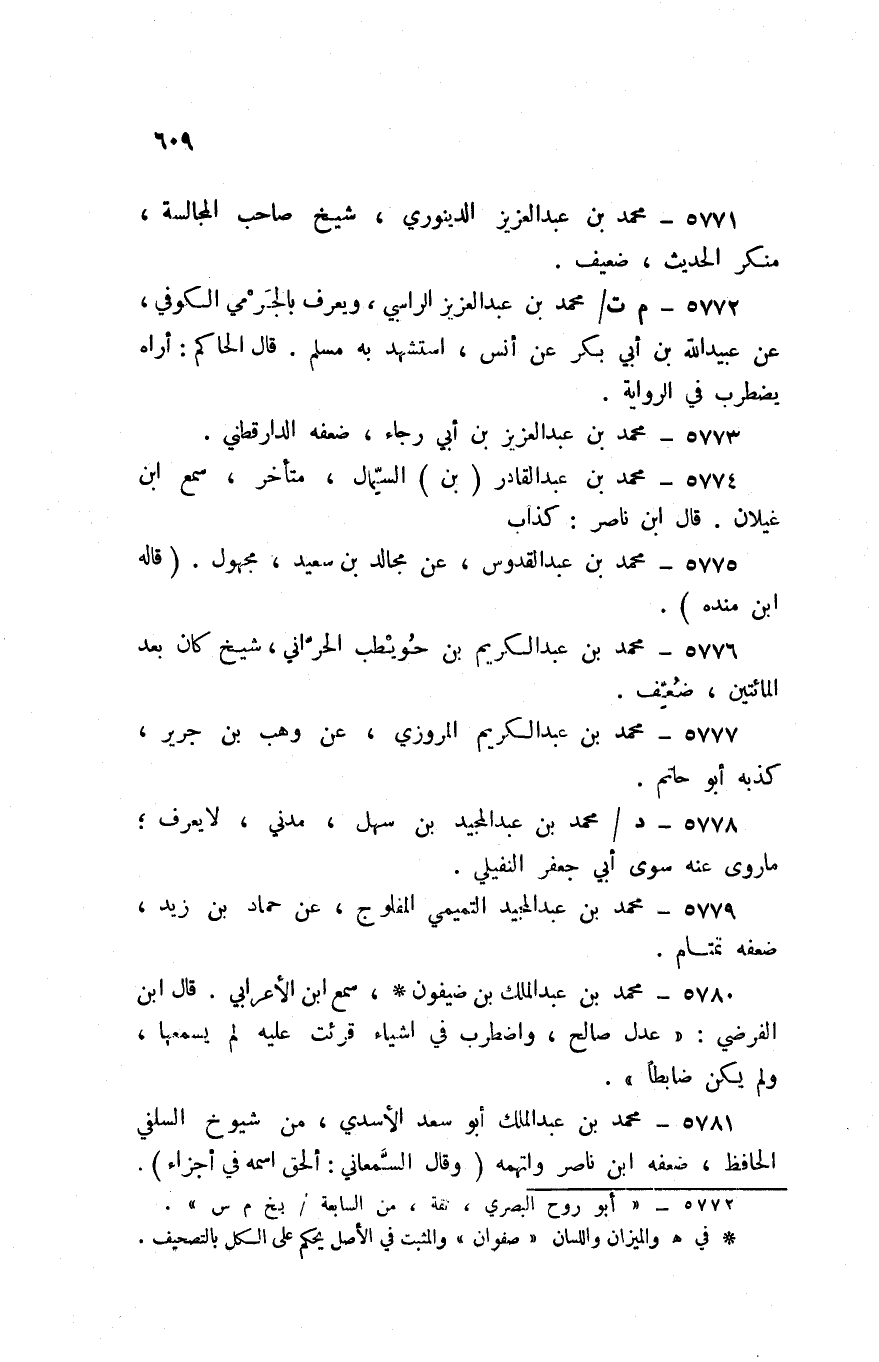 ٦٠٩
٥٧٧١ ـ محمد بن عبدالعزيز الدينوري ، شيخ صاحب المجالسة ،
منكر الحديث ، ضعيف .
٥٧٧٢ ـ م ت/ محمد بن عبدالعزيز الراسي ، ويعرف بالجَرْمي الكوفي ،
عن عبيدالله بن أبي بكر عن أنس ، استشهد به مسلم . قال الحاكم : أراه
يضطرب في الرواية .
٥٧٧٣ ـ محمد بن عبدالعزيز بن أبي رجاء ، ضعفه الدارقطني .
٥٧٧٤ ـ محمد بن عبدالقادر ( بن ) السمّاك ، متأخر ، سمع ابن
غيلان . قال ابن ناصر : كذاب
٥٧٧٥ ـ محمد بن عبدالقدوس ، عن مجالد بن سعيد ، مجهول . ( قاله
ابن منده ) .
٥٧٧٦ ـ محمد بن عبدالكريم بن حُويْطب الحرّاني ، شيخ كان بعد
المائتين ، ضُعِّف .
٥٧٧٧ ـ محمد بن عبدالكريم المروزي ، عن وهب بن جرير ،
كذبه أبو حاتم .
٥٧٧٨ ـ د / محمد بن عبدالمجيد بن سهل ، مدني ، لايعرف ؛
ماروى عنه سوى أبي جعفر النفيلي .
٥٧٧٩ ـ محمد بن عبدالمجيد التميمي المفلوج ، عن حماد بن زيد ،
ضعفه تمتـام .
٥٧٨٠ ـ محمد بن عبدالملك بن ضيفون * ، سمع ابن الأعرابي . قال ابن
الفرضي : « عدل صالح ، واضطرب في اشياء قرئت عليه لم يسمعها ،
ولم يكن ضابطاً » .
٥٧٨١ ـ محمد بن عبدالملك أبو سعد الأسدي ، من شيوخ السلفي
الحافظ ، ضعفه ابن ناصر واتهمه ( وقال السَّمعاني : ألحق اسمه في أجزاء ) .
٥٧٧٢ ـ « أبو روح البصري ، ثقة ، من السابعة / بخ م س » .
* في ﻫ والميزان واللسان « صفوان » والمثبت في الأصل يحكم على الكل بالتصحيف .